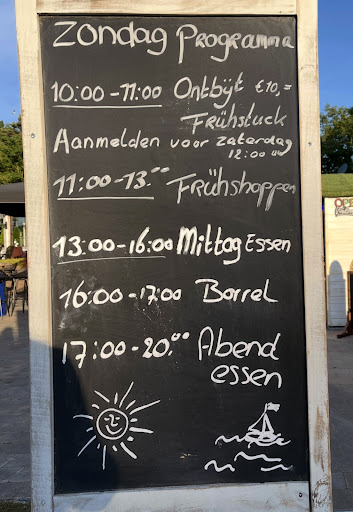 Zondag Programma
10:00-11:00 Ontbijt €10,=
Frühstuck
Aanmelden voor zaterdag
12:00 uur
11:00-13.00 Frühshoppen
13:00-16:00 Mittag Essen
16:00-17:00 Borrel
17:00-20.00 Abend
essen